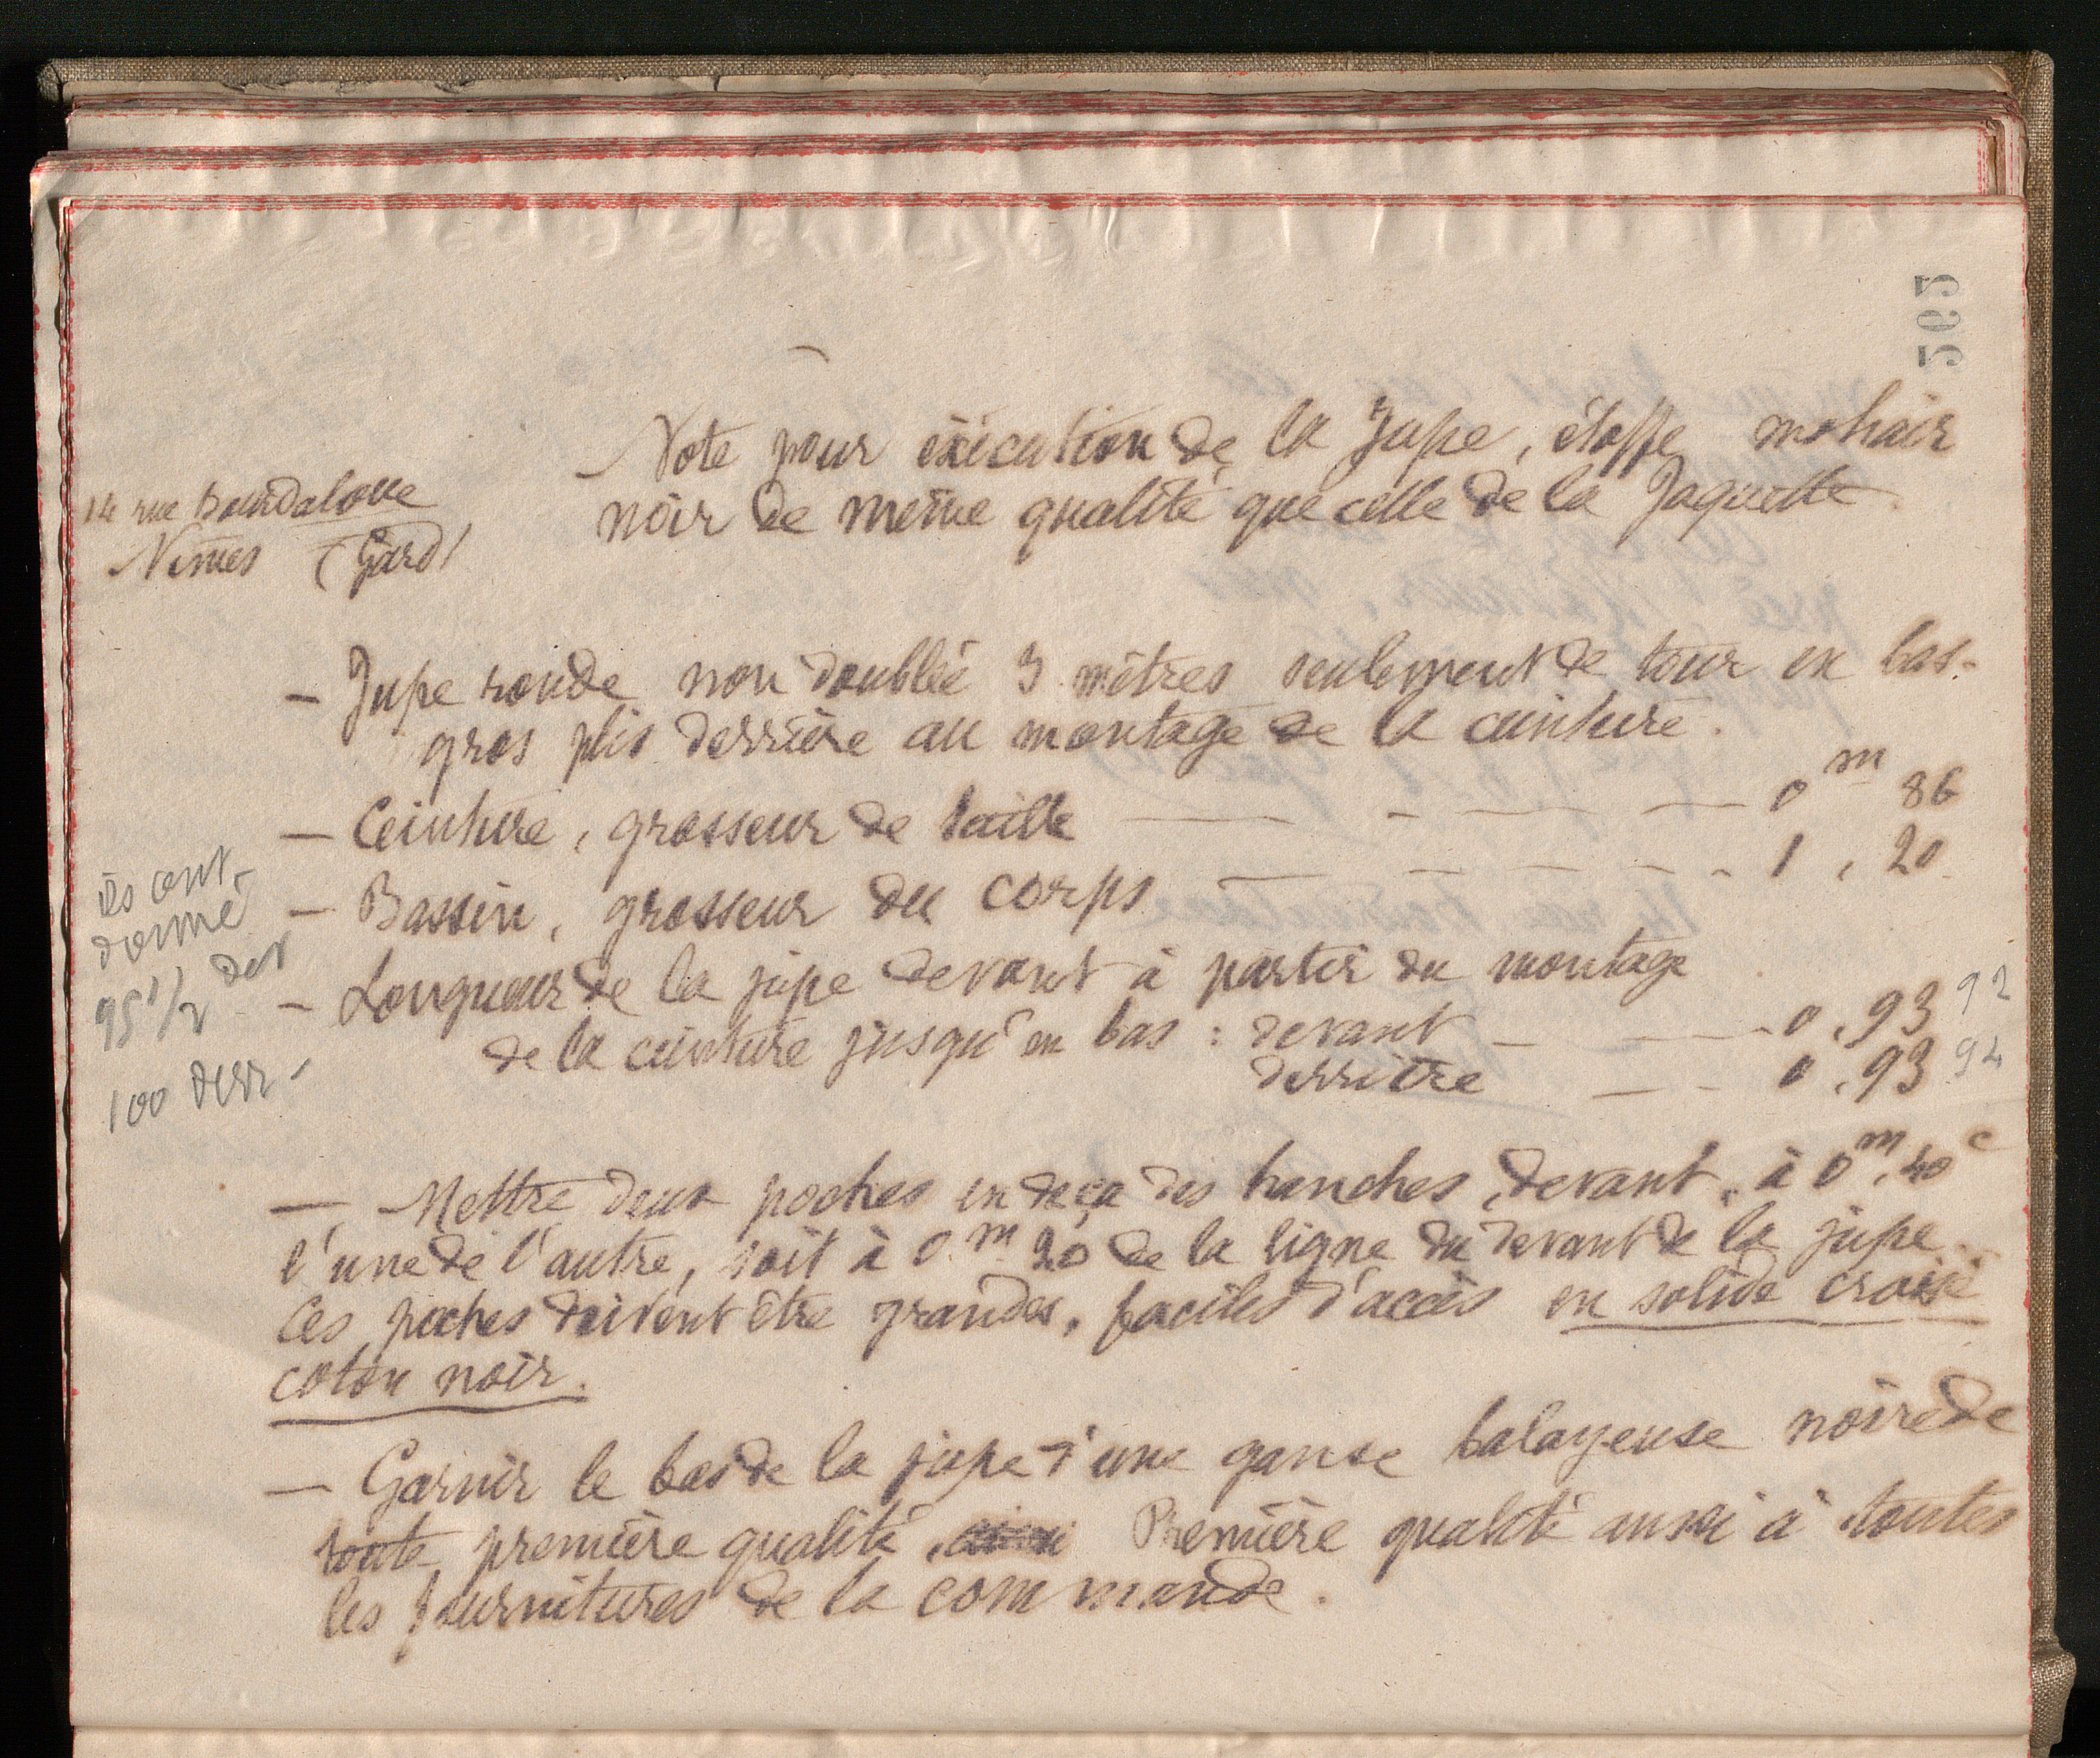 565
Note pour exécution de la Jupe, étoffe mohair
noir de même qualité que celle de la Jaquette.
14 rue Bourdaloue
Nimes (Gard)
- Jupe ronde non doublée 3 mètres seulement de tour en bas -
gros plis derrière au montage de la ceinture.
- Ceinture, grosseur de taille — - — — 0 m 86
- Bassin, grosseur du corps — - - - - 1, 20
- Longueur de la jupe devant à partir du montage
de la ceinture jusqu'en bas : devant - — 0, 93 92
derrière — - 0, 93 94
ils ont
donné
95 1/2 dev
100 derr -
— Mettre deux poches en deça des hanches, devant, à 0m, 40c
l'une de l'autre, soit à 0 m 20 de la ligne du devant de la jupe.
Ces poches doivent être grandes, faciles d'accès en solide croisé
coton noir.
— Garnir le bas de la jupe d'une ganse balayeuse noire de
toute première qualité, Première qualité aussi à toutes
les fournitures de la commande.